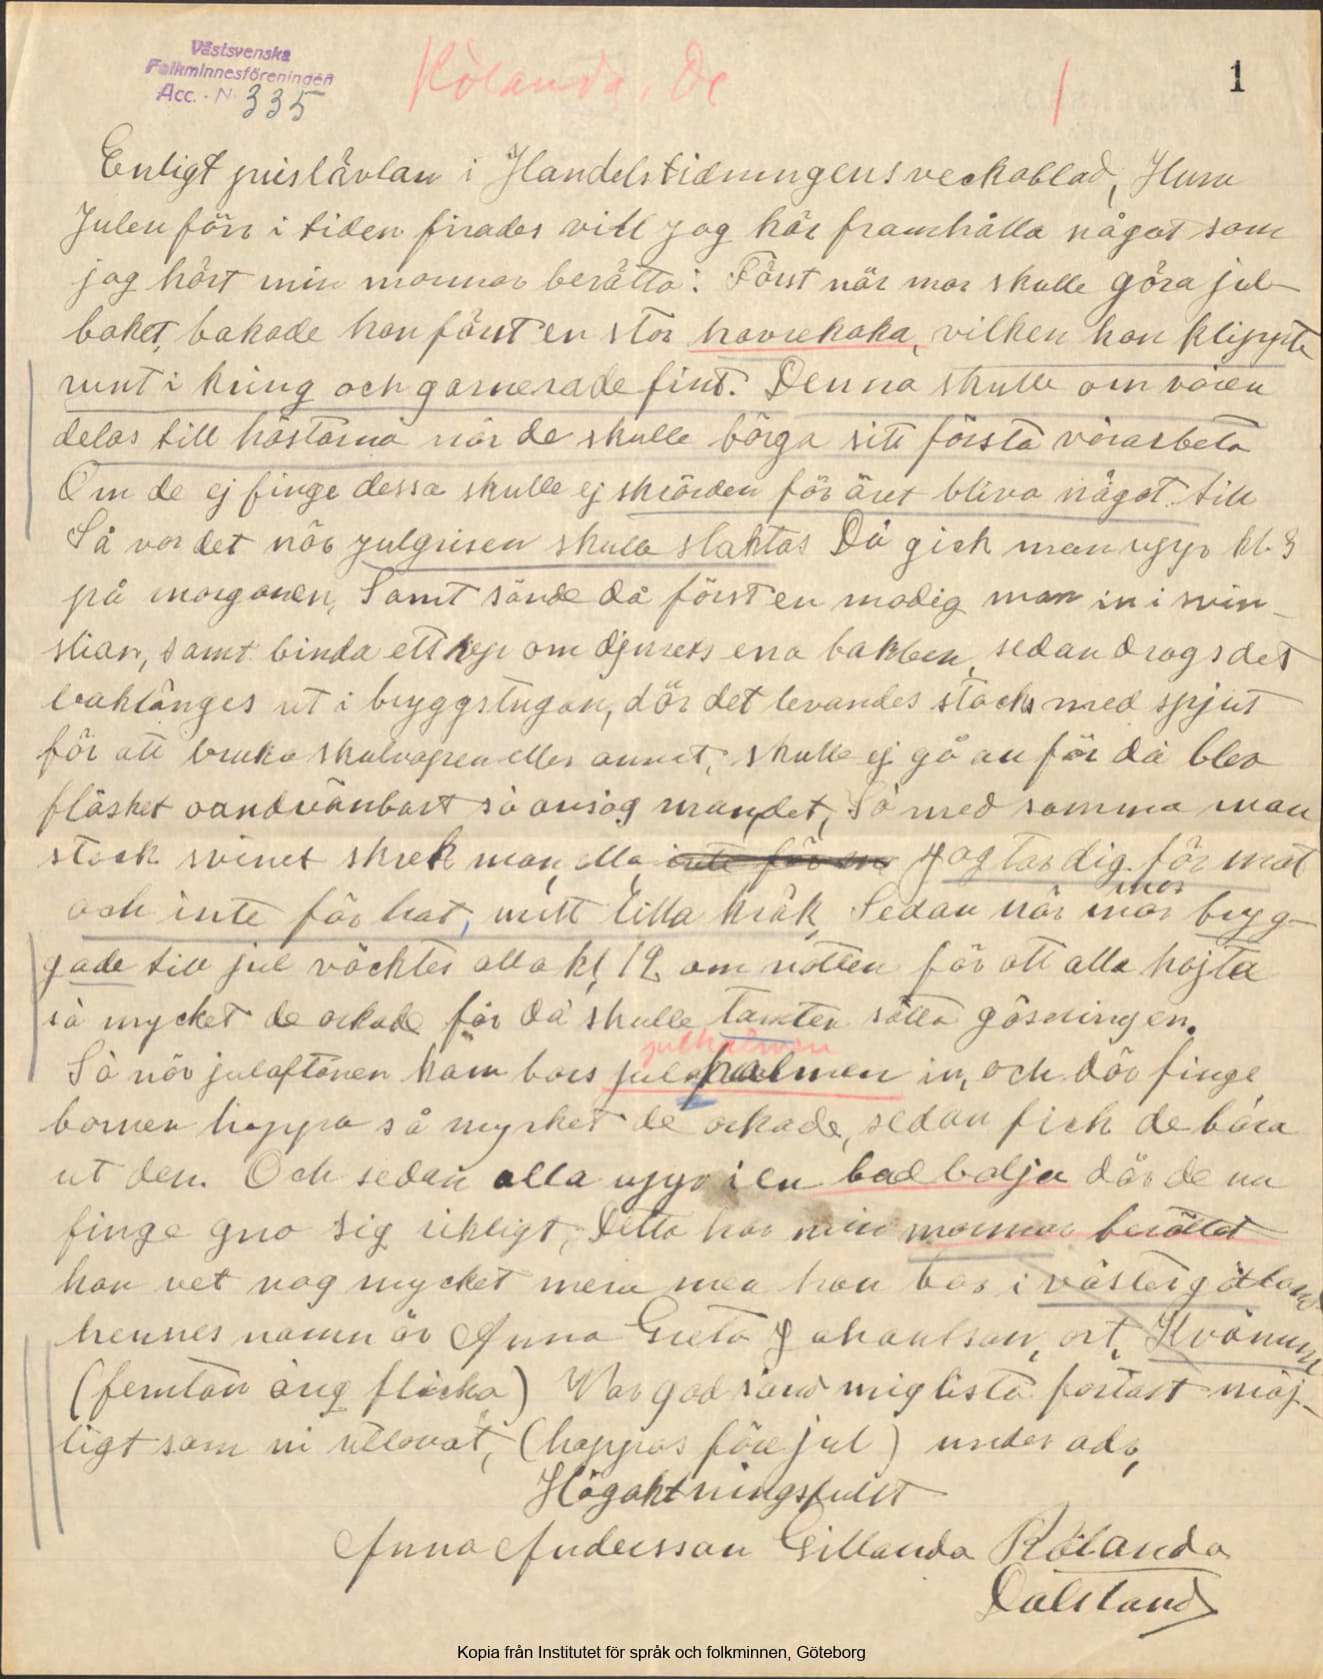 Västsvenska
Folkminnesföreningen
Acc. - N 335
Rölanda, Dl
1
Enligt pristävlan i Handelstidningens veckoblad, Huru
Julen förr i tiden firades vill jag här framhålla något som
jag hört min mormor berätta: Först när mor skulle göra jul-
baket, bakade hon först en stor havrekaka, vilken hon klippte
runt i kring och garnerade fint. Denna skulle om våren
delas till hästarna när de skulle börga sitt första vårarbeta
Om de ej finge dessa skulle ej skörden för året bliva något till
Så var det när julgrisen skulle slaktas Då gick man upp kl. 3
på morganen, Samt sände då först en modig man in i svin-
stian, samt binda ett rep om djurets ena bakben, sedan drogs det
baklänges ut i bryggstugan, där det levandes stacks med spjut
för att bruka skutvapen eller annat, skulle ej gå an för då blev
fläsket oandvänbart så ansåg man det, Så med samma man
stack svinet skrek man, alla, Jag tar dig för mat
och inte för hat, mitt lilla kräk, Sedan när mor brygg-
gade till jul väcktes alla kl, 12 om natten för att alla hojta
så mycket de orkade för då skulle tomten sätta gäsningen.
julhalmen
Så när julaftonen kom bars julhalmen in, och där finge
barnen hoppa så mycket de orkade, sedan fick de bära
ut den. Och sedan alla upp i en badbalja där de nu
finge gno sig rikligt, Detta har min mormor berättat
hon vet nog mycket mera men hon bor i västergötland
hennes namn är Anna Greta Johanlson, ort, Kvänum
(femton årig flicka) Var god sänd mig lista fortast möj-
ligt som ni utlovat, (hoppas före jul) under adr,
Högaktningsfullt
Anna Andersson Gillanda Rölanda
Dalsland
Kopia från Institutet för språk och folkminnen, Göteborg